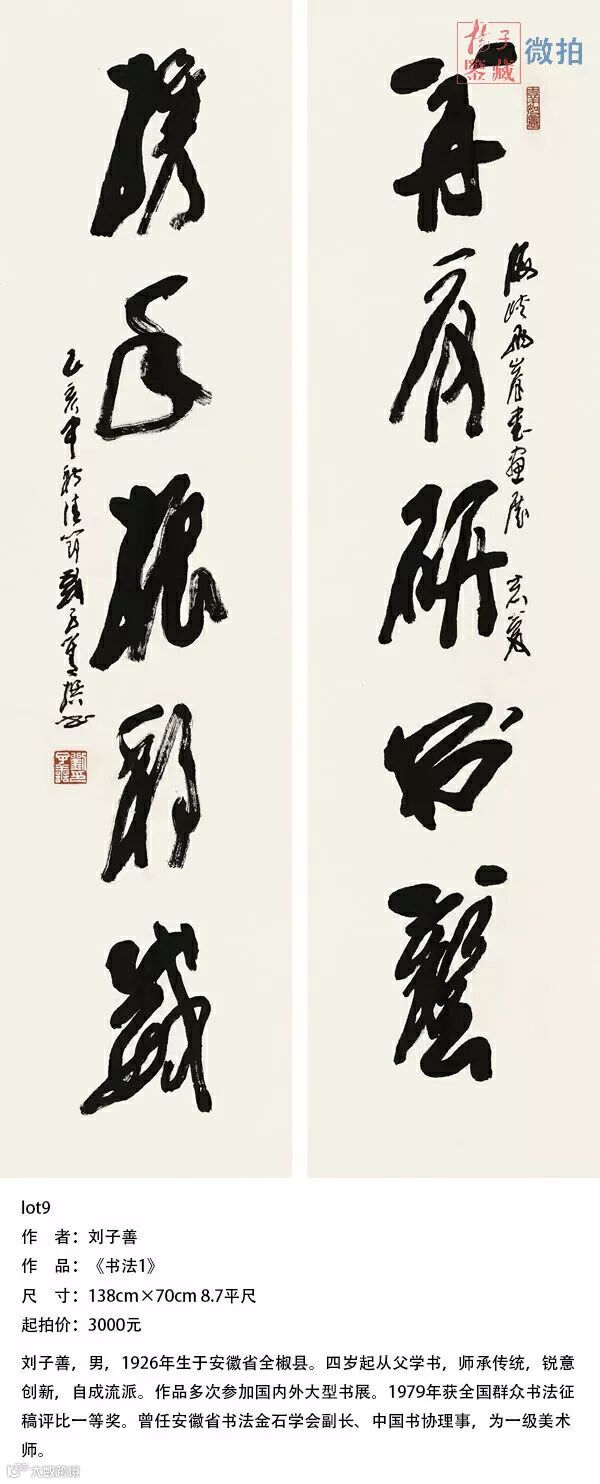 子
鑒藏
微拍
研
海峡两岸書画展 志賀
携
手
振
乙亥中秋佳節劉子善撰書
lot9
作 者：刘子善
作 品：《书法1》
尺 寸：138cm×70cm 8.7平尺
起拍价：3000元
刘子善，男，1926年生于安徽省全椒县。四岁起从父学书，师承传统，锐意
创新，自成流派。作品多次参加国内外大型书展。1979年获全国群众书法征
稿评比一等奖。曾任安徽省书法金石学会副长、中国书协理事，为一级美术
师。